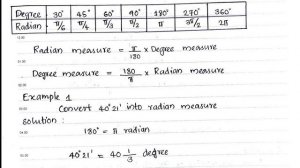 Degree 30° 45° 60° 90° 180° 270° 360°
Radian π/6 π/4 π/3 π/2 π 3π/2 2π
Radian measure = π/180 × Degree measure
Degree measure = 180/π × Radian measure
Example 1
Convert 40°21' into radian measure
solution:
180° = π radian
40°21' = 40 1/3 degree